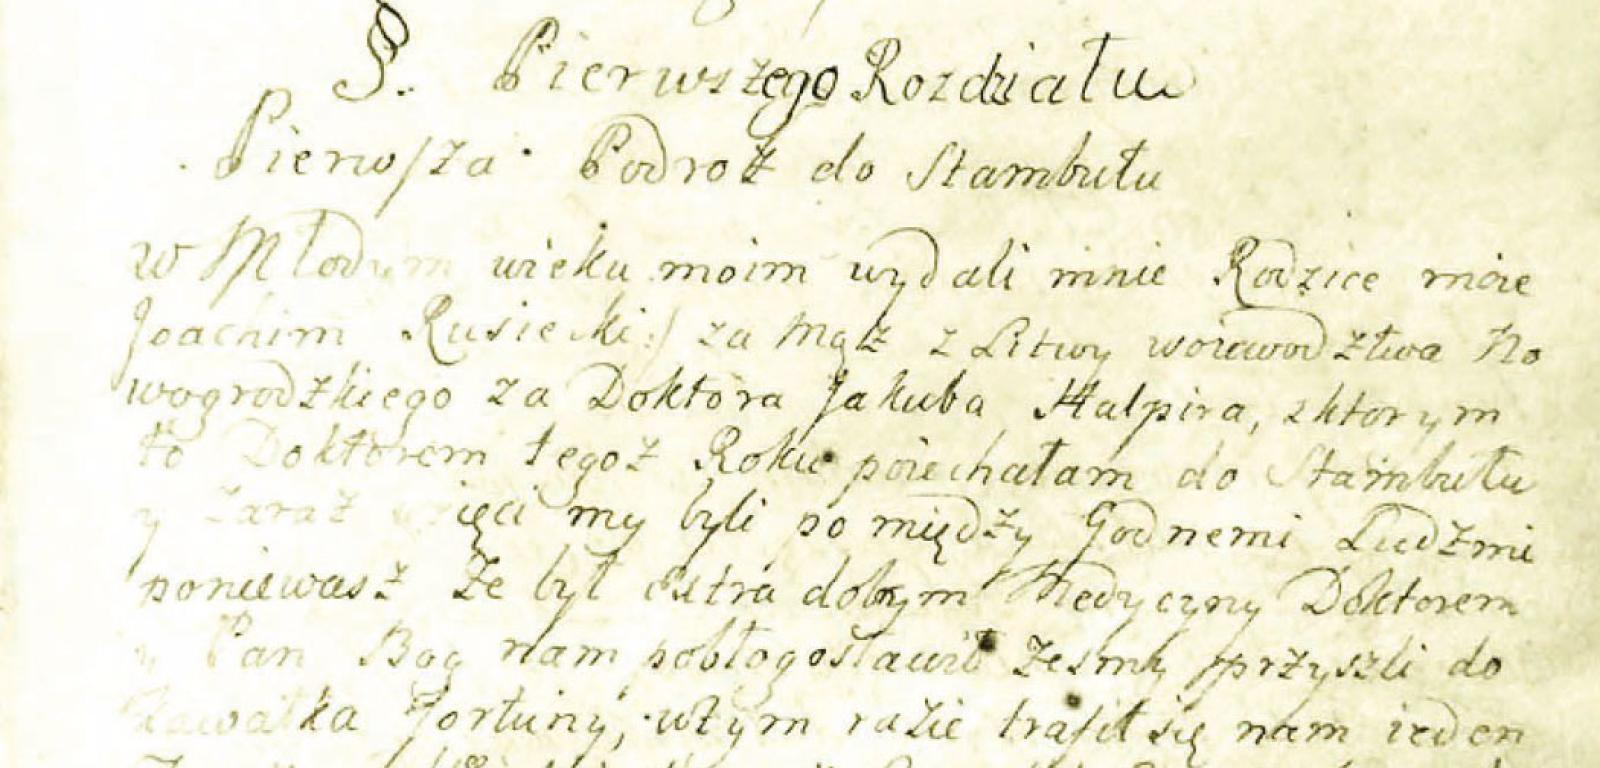 §. Pierwszego Rozdziału
Pierwsza Podroż do Stambułu
w Młodym wieku moim wydali mnie Rodzice moie
Joachim Rusiecki:/ za Mąż z Litwy woiewodztwa No
wogrodzkiego za Doktora Jakuba Halpira, zktorym
to Doktorem tegoż Roku poiechałam do Stambułu
y zaraz wzięci my byli pomiędzy Godnemi Ludźmi
poniewasz że był extra dobrym Medycyny Doktorem
y Pan Bog nam pobłogosławił żeśmy przyszli do
kawałka Fortuny, wtym razie trafił się nam ieden